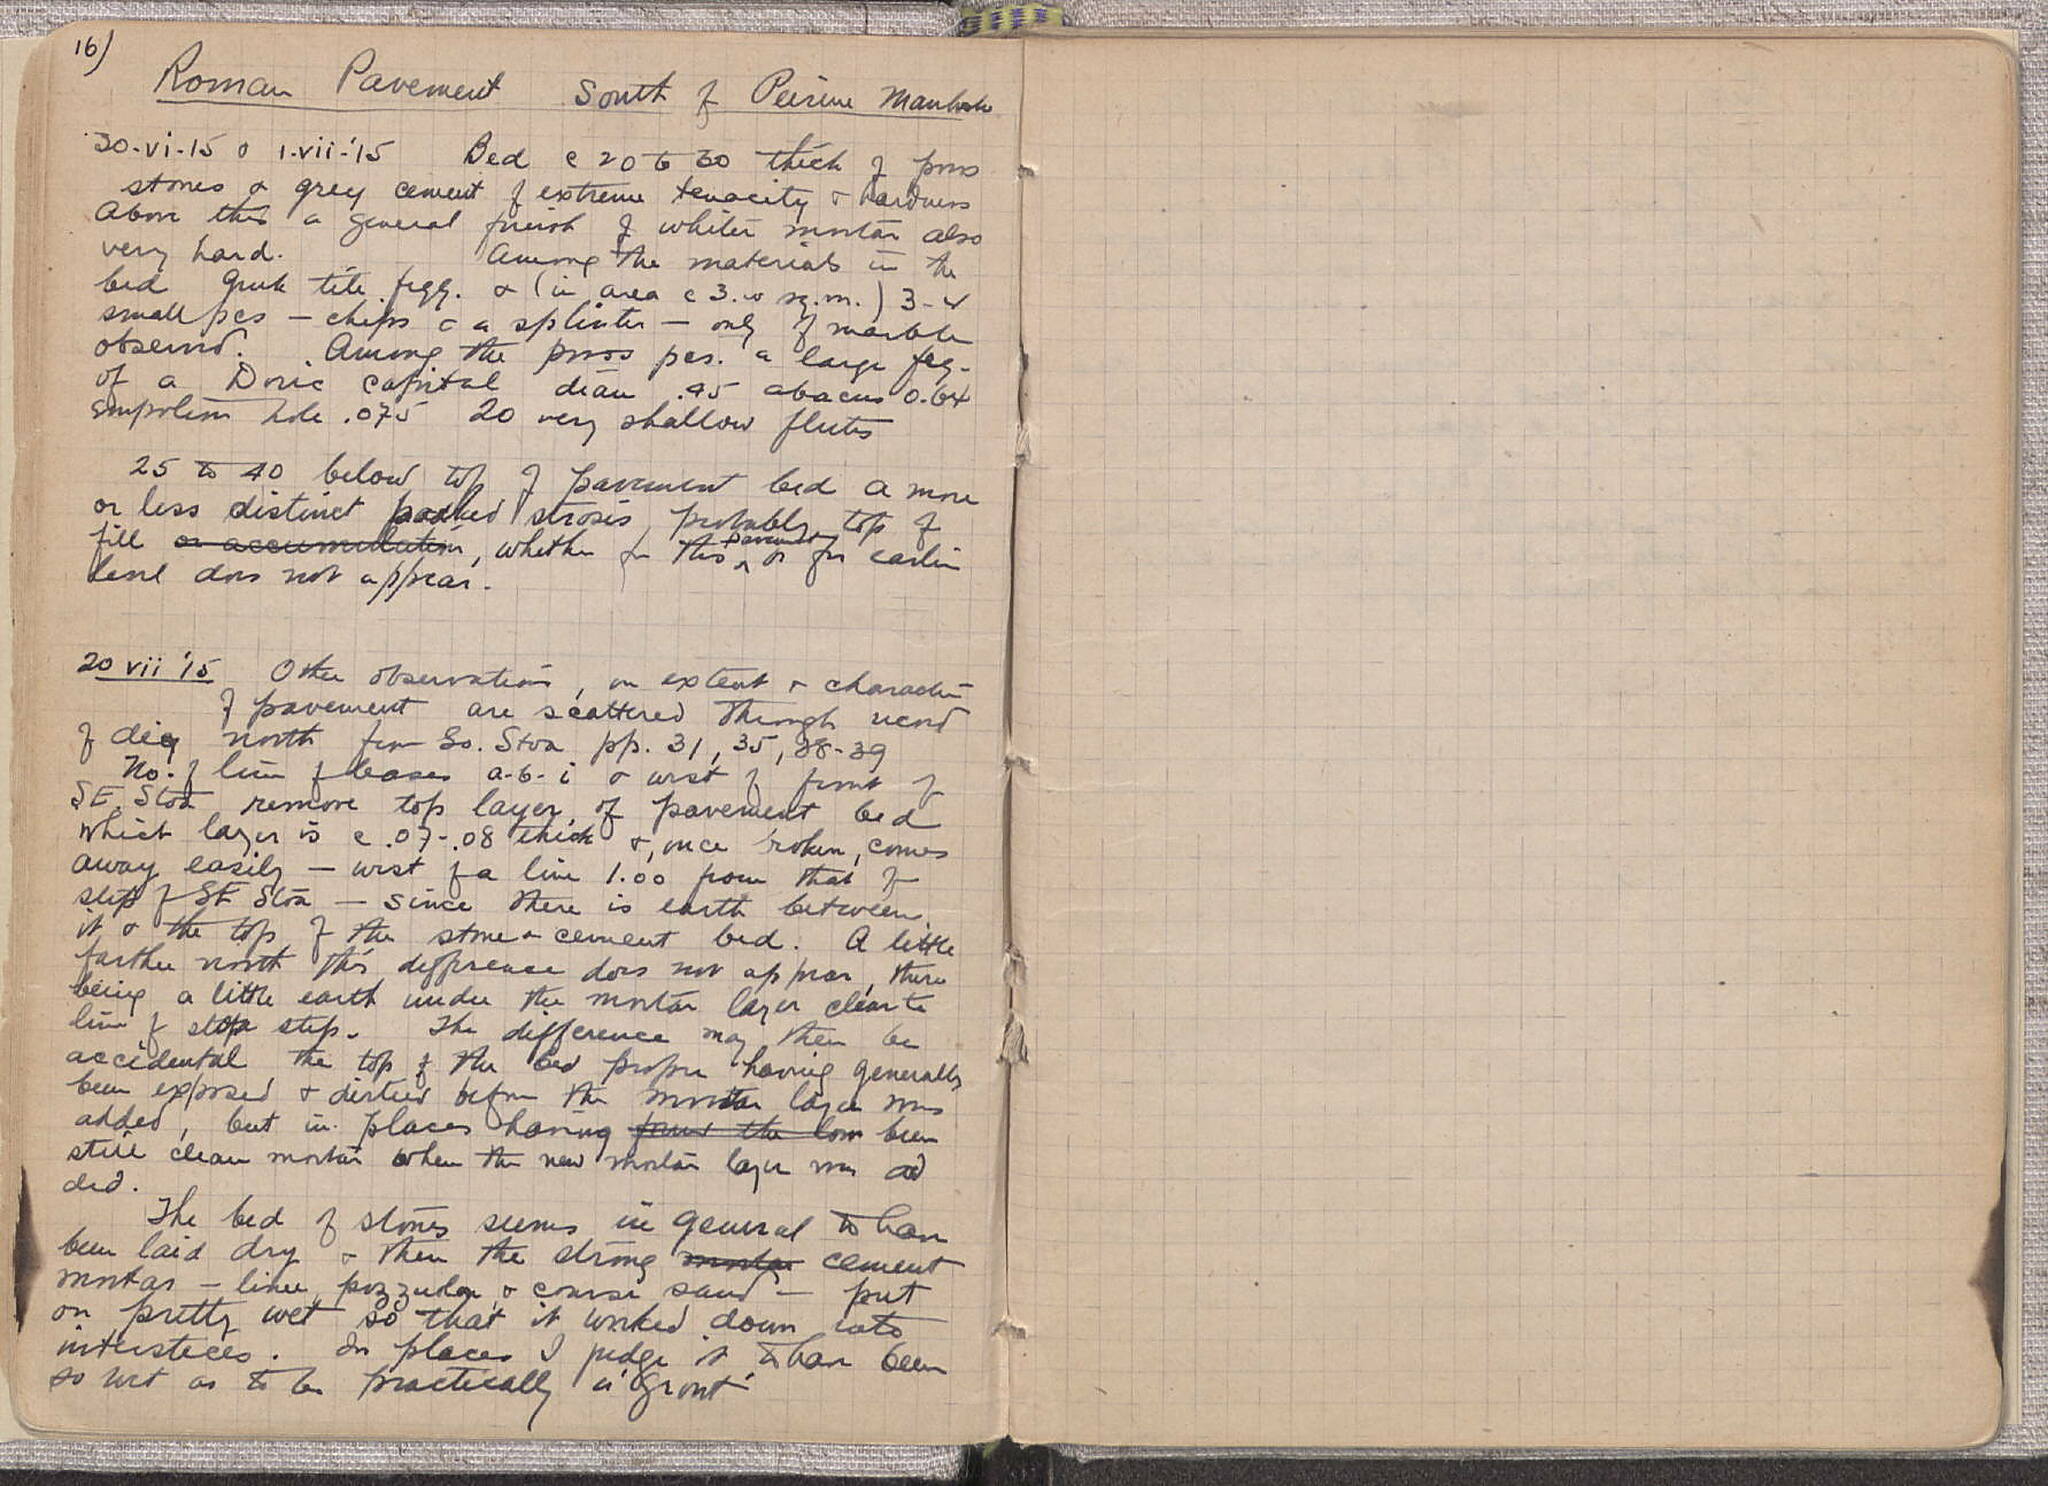 16)
Roman Pavement South of Peirene Manhole
30-vi-15 & 1-vii-'15 Bed c 20 to 30 thick of poros
stones & grey cement of extreme tenacity & hardness
Above this a general finish of whiter mortar also
very hard. Among the materials in the
bed Greek tile fgg. & (in area c 3. sq.m.) 3-4
small pcs – chips a splinter – only of marble
observed. Among the poros pcs. a large fg.
of a Doric capital diam .45 abacus 0.64
empolion hole .075 20 very shallow flutes
25 to 40 below top of pavement bed a more
or less distinct packed strosis, probably top of
fill or accumulation, whether for this pavement or for earlier
level does not appear.
20 vii '15 Other observations, on extent & character
of pavement are scattered through record
of dig north from So. Stoa pp. 31, 35, 38-39
No. of line of bases a-b-i & west of front of
SE. Stoa remove top layer of pavement bed
which layer is c .07-.08 thick &, once broken, comes
away easily – west of a line 1.00 from that of
step of SE Stoa – since there is earth between
it & the top of the stone & cement bed. A little
farther north this difference does not appear, there
being a little earth under the mortar layer clear to
line of stoa step. The difference may then be
accidental the top of the bed proper having generally
been exposed & dirtied before the mortar layer was
added, but in places having been
still clean mortar when the new mortar layer was ad
ded.
The bed of stones seems in general to have
been laid dry & then the strong mortar cement
mortar – lime, pozzuola, & coarse sand – put
on pretty wet so that it worked down into
interstices. In places I judge it to have been
so wet as to be practically a 'grout'